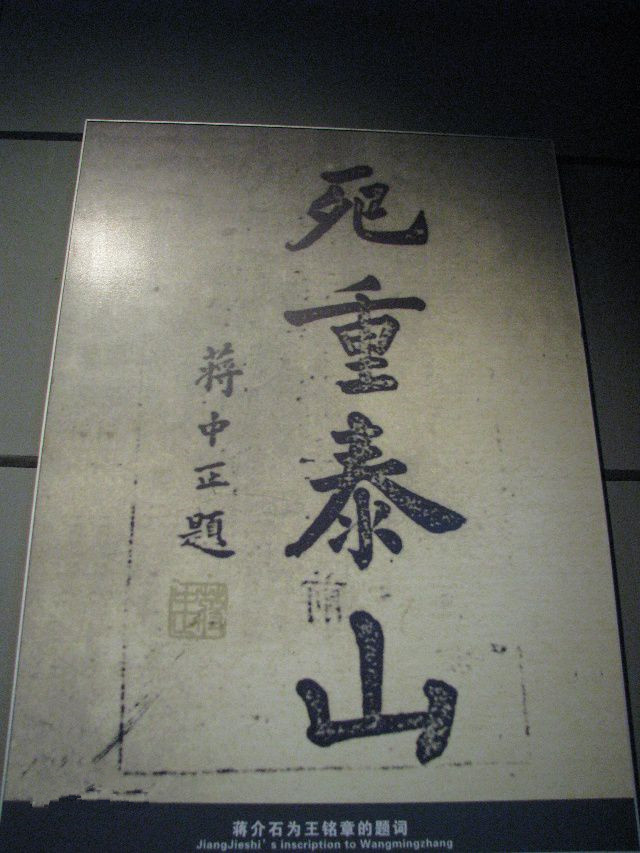 死重泰山
蒋中正題
蒋介石为王铭章的题词
JiangJieshi's inscription to Wangmingzhang